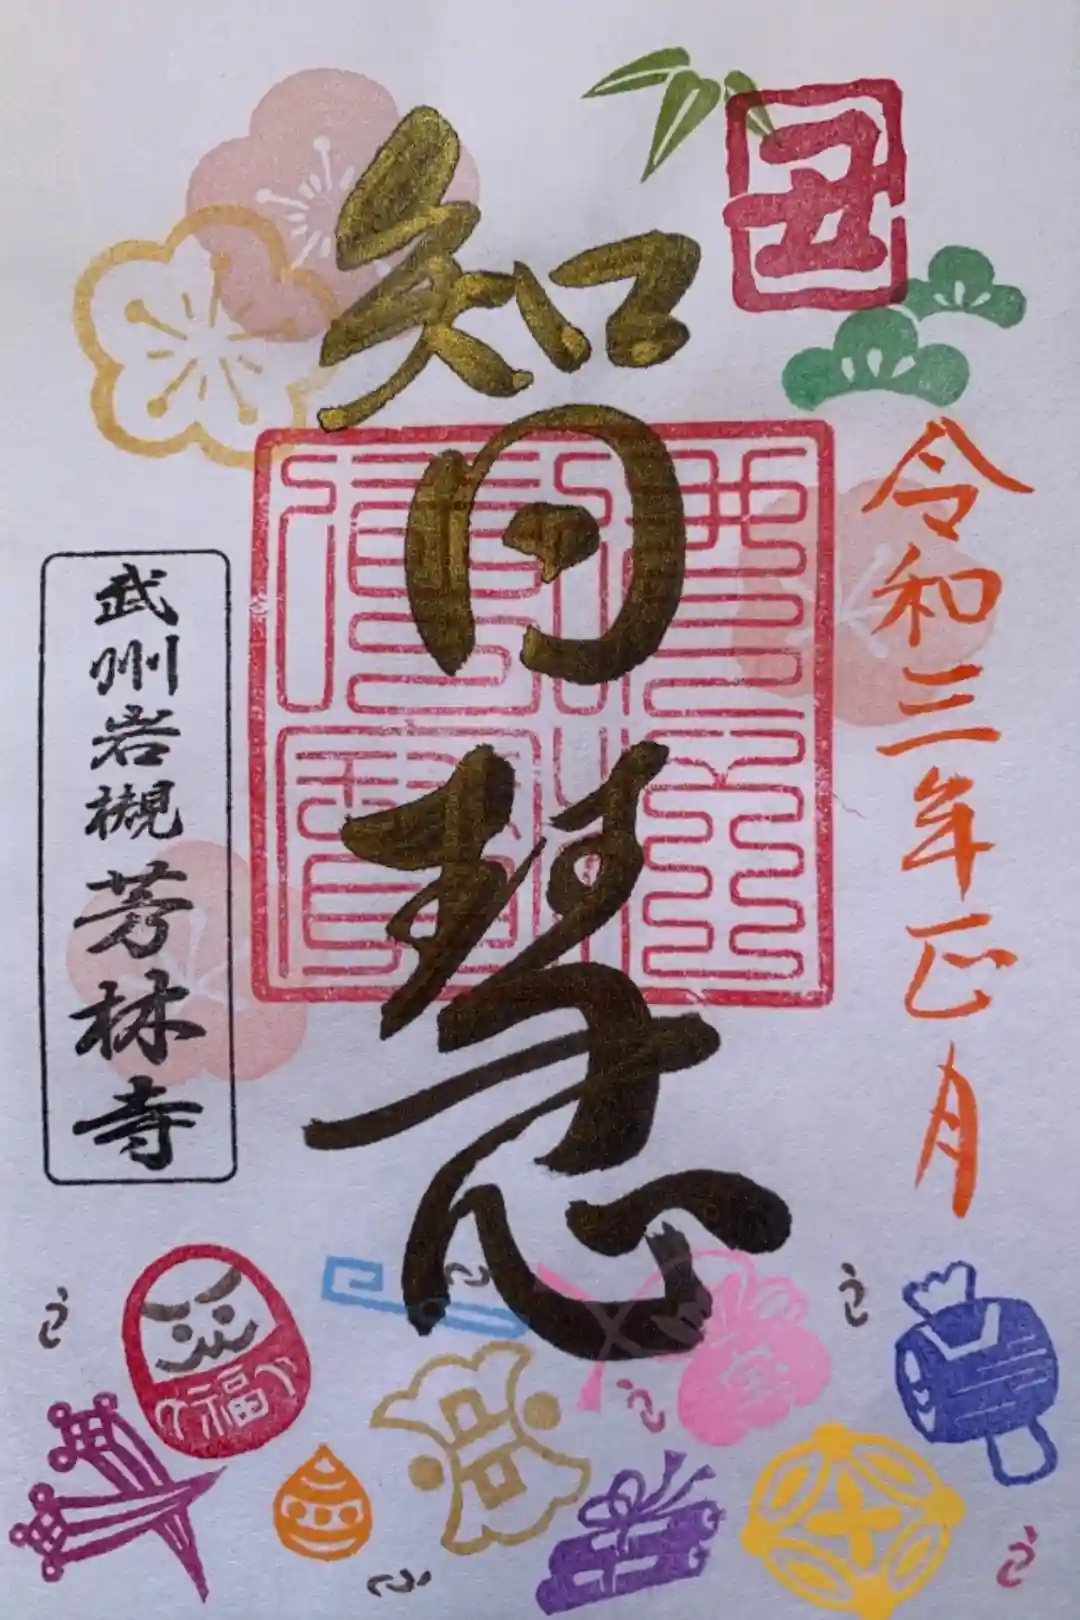 丑
令和三年正月
知日慧
武州岩槻芳林寺
福